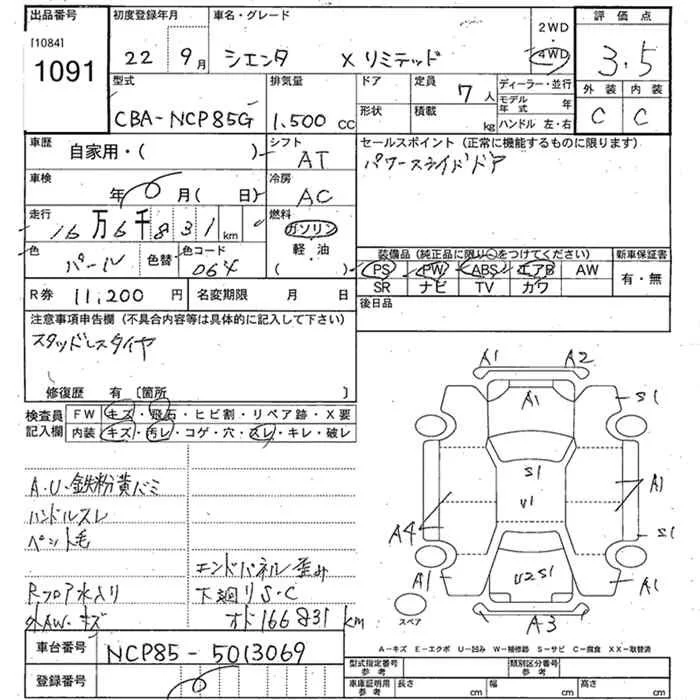 出品番号 初度登録年月 車名・グレード 2WD 評価点
[1084] 22 9月 シエンタ Xリミテッド 4WD 3.5
1091
型式 排気量 ドア 定員 7人 ディーラー・並行 外装 内装
CBA-NCP85G 1.500cc 形状 積載 kg モデル年式 年 C C
ハンドル 左・右
車歴 自家用・( ) シフト AT セールスポイント (正常に機能するものに限ります)
パワースライドドア
車検 年 0月 ( 日) 冷房 AC
走行 16万6千831km 燃料 ガソリン
軽・油
( )
色 パール 色替 色コード 064
装備品 (純正品に限り○をつけてください) 新車保証書
PS PW ABS エアB AW 有・無
SR ナビ TV カワ
R券 11,200円 名変期限 月 日 後日品
注意事項申告欄 (不具合内容等は具体的に記入して下さい)
スタッドレスタイヤ
修復歴 有 [箇所 ]
検査員 FW キズ・飛石・ヒビ割・リペア跡・X要
記入欄 内装 キズ・汚レ・コゲ・穴・スレ・キレ・破レ
A.U.鉄粉黄バミ
ハンドルスレ
ペット毛
エンドパネル歪み
Rフロア水入り 下廻りS.C
外AW.キズ オド166831km
A1 A2
A1 S1
S1
V1 A1
A4 S1
A1 U2S1 A1
スペア A3
A-キズ E-エクボ U-凹み W-補修跡 S-サビ C-腐食 XX-取替済
車台番号 NCP85-5013069
型式指定番号 参考 類別区分番号 参考
登録番号 0
車庫証明用 参考 長さ cm 幅 cm 高さ cm